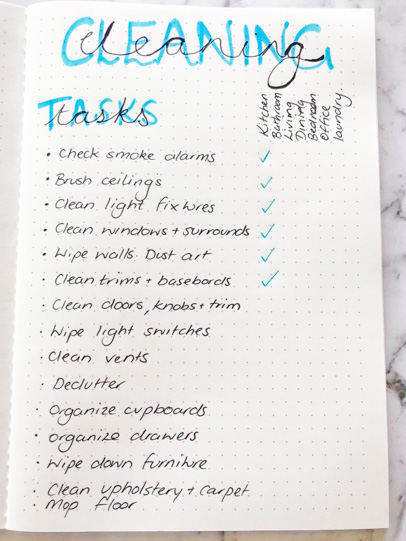 CLEANING
cleaning
TASKS
tasks
Kitchen
Bathroom
Living
Dining
Bedroom
Office
laundry
• Check smoke alarms ✓
• Brush ceilings ✓
• Clean light fixtures ✓
• Clean windows + surrounds ✓
• Wipe walls. Dust art ✓
• Clean trims + basebords ✓
• Clean doors, knobs + trim
• Wipe light switches
• Clean vents
• Declutter
• Organize cupboards
• organize drawers
• Wipe down furniture
• Clean upholstery + carpet
• Mop floor